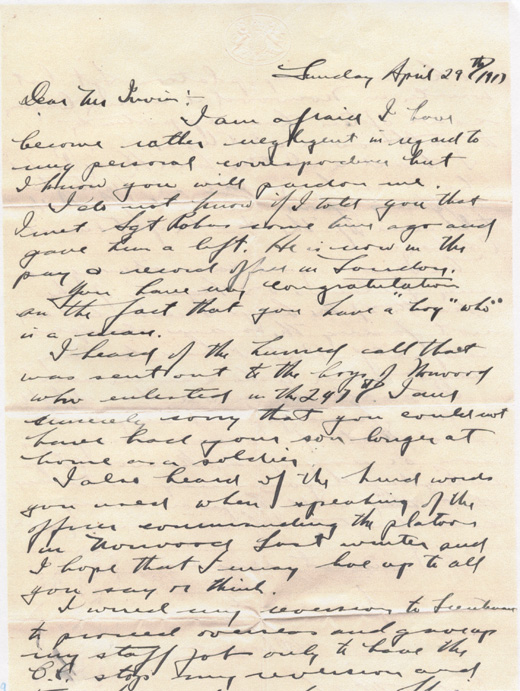 Sunday April 29th/1917
Dear Mr Irwin:-
I am afraid I have
become rather negligent in regard to
my personal correspondence but
I know you will pardon me.
I do not know if I told you that
I met Sgt some time ago and
gave him a lift. He is now in the
pay & record office in London.
You have my congratulation
on the fact that you have a "boy" "who"
is a man.
I heard of the hurried call that
was sent out to the boys of Norwood
who enlisted in the 247th. I am
sincerely sorry that you could not
have had your son longer at
home as a soldier.
I also heard of the kind words
you used when speaking of the
officer commanding the platoon
in Norwood last winter and
I hope that I may live up to all
you say or think.
I wired my reversion to Lieutenant
to proceed overseas and gave up
my staff job only to have the
C.O. stop my reversion and